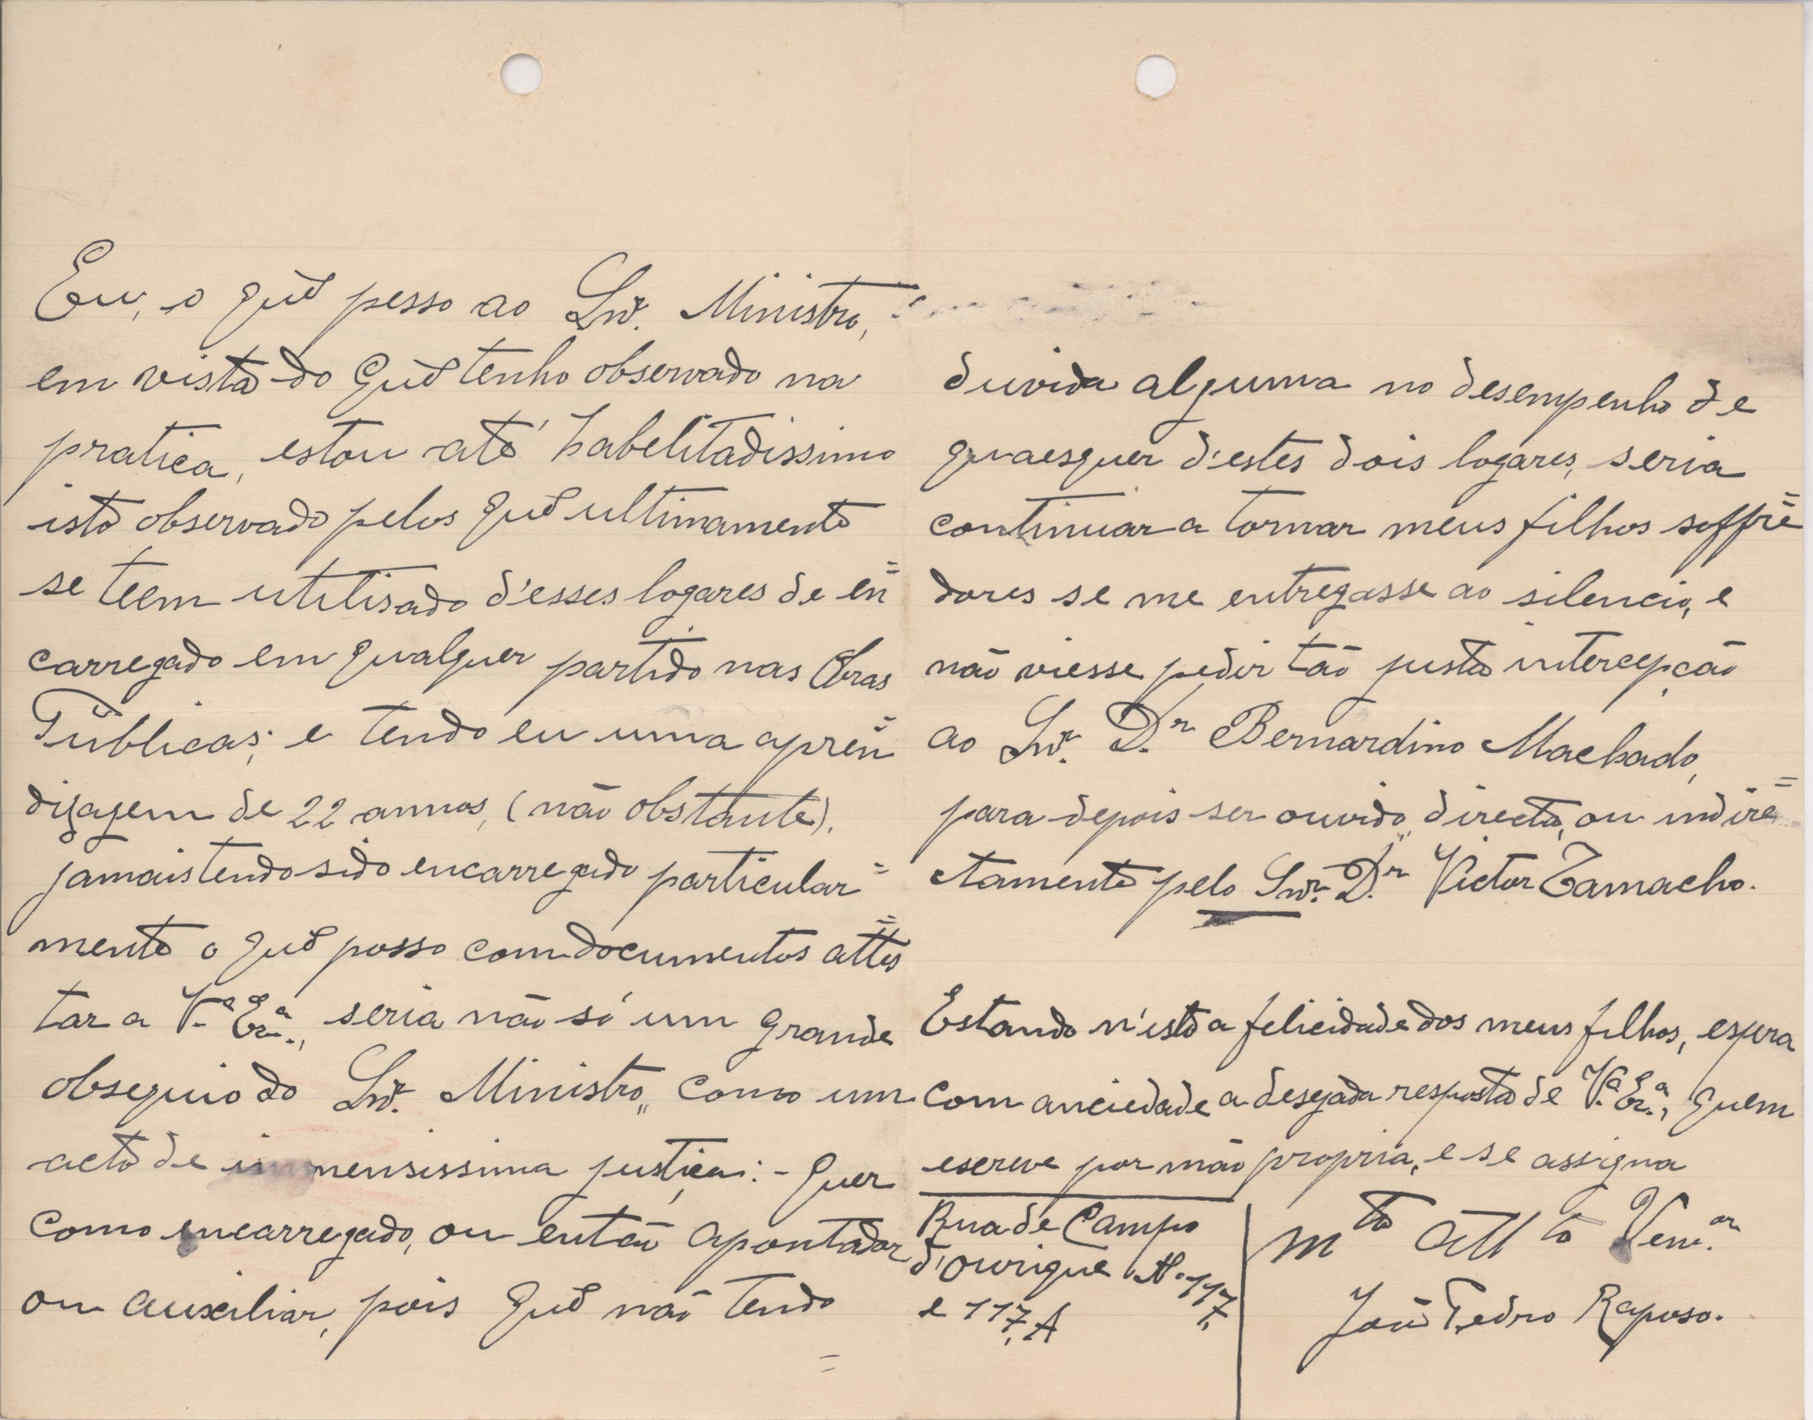 Eu, o que pesso ao Snr. Ministro,
em vista do que tenho observado na
pratica, estou até habelitadissimo
isto observado pelos que ultimamente
se teem utilisado d'esses logares de en=
carregado em qualquer partido nas Obras
Públicas; e tendo eu uma apren=
dizagem de 22 annos, (não obstante),
jamais tendo sido encarregado particular=
mente o que posso com documentos attes=
tar a V.ª Ex.ª, seria não só um grande
obsequio do Snr. Ministro,, como um
acto de immensissima justiça: - Quer
como encarregado, ou então apontador
ou auxiliar, pois que não tendo
=
duvida alguma no desempenho de
quaesquer d'estes dois logares, seria
continuar a tornar meus filhos soffre=
dores se me entregasse ao silencio, e
não viesse pedir tão justa intercepção
ao Snr. D.r Bernardino Machado,
para depois ser ouvido,, directa, ou indire=
ctamente pelo Snr. D.r Victor Tamacho.
Estando n'isto a felicidade dos meus filhos, espera
com anciedade a desejada resposta de V.ª Ex.ª, quem
escreve por mão propria, e se assigna
Rua de Campo
d'Ourique N.º 117,
e 117, A
M.to Att.to Ven.or
João Pedro Raposo.